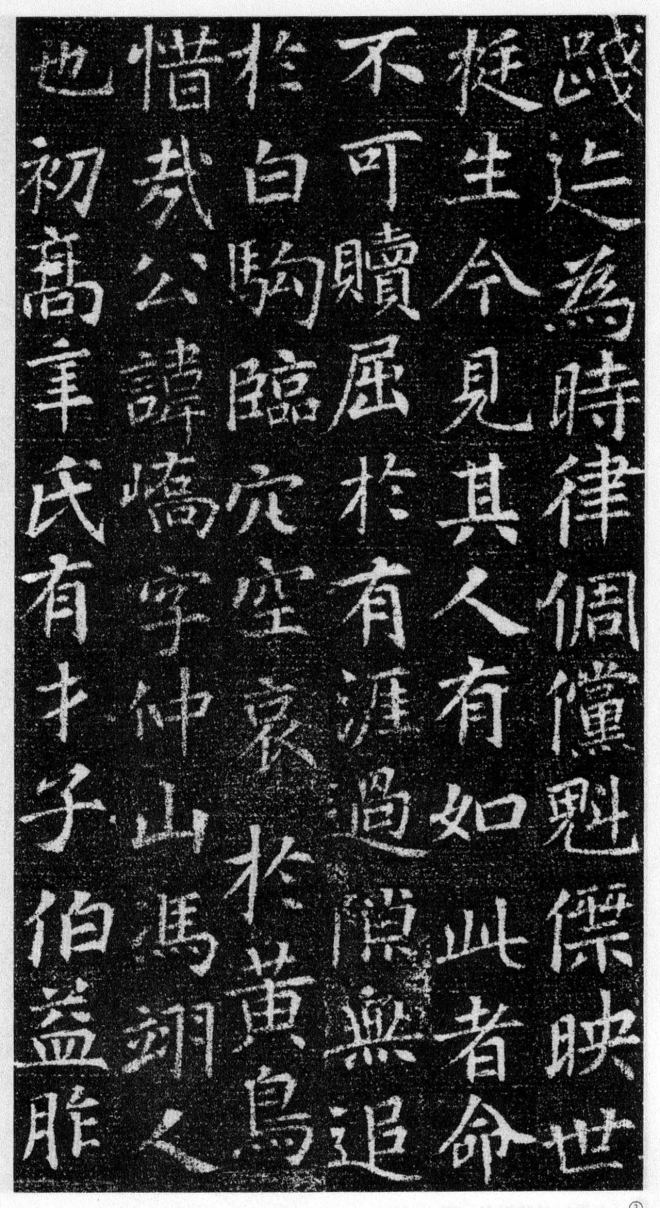 踐迹為時律倜儻魁傑映世
挺生今見其人有如此者命
不可贖屈於有涯過隙無追
於白駒臨穴空哀於黃鳥
惜哉公諱嶠字仲山馮翊人
也初髙辛氏有才子伯益胙